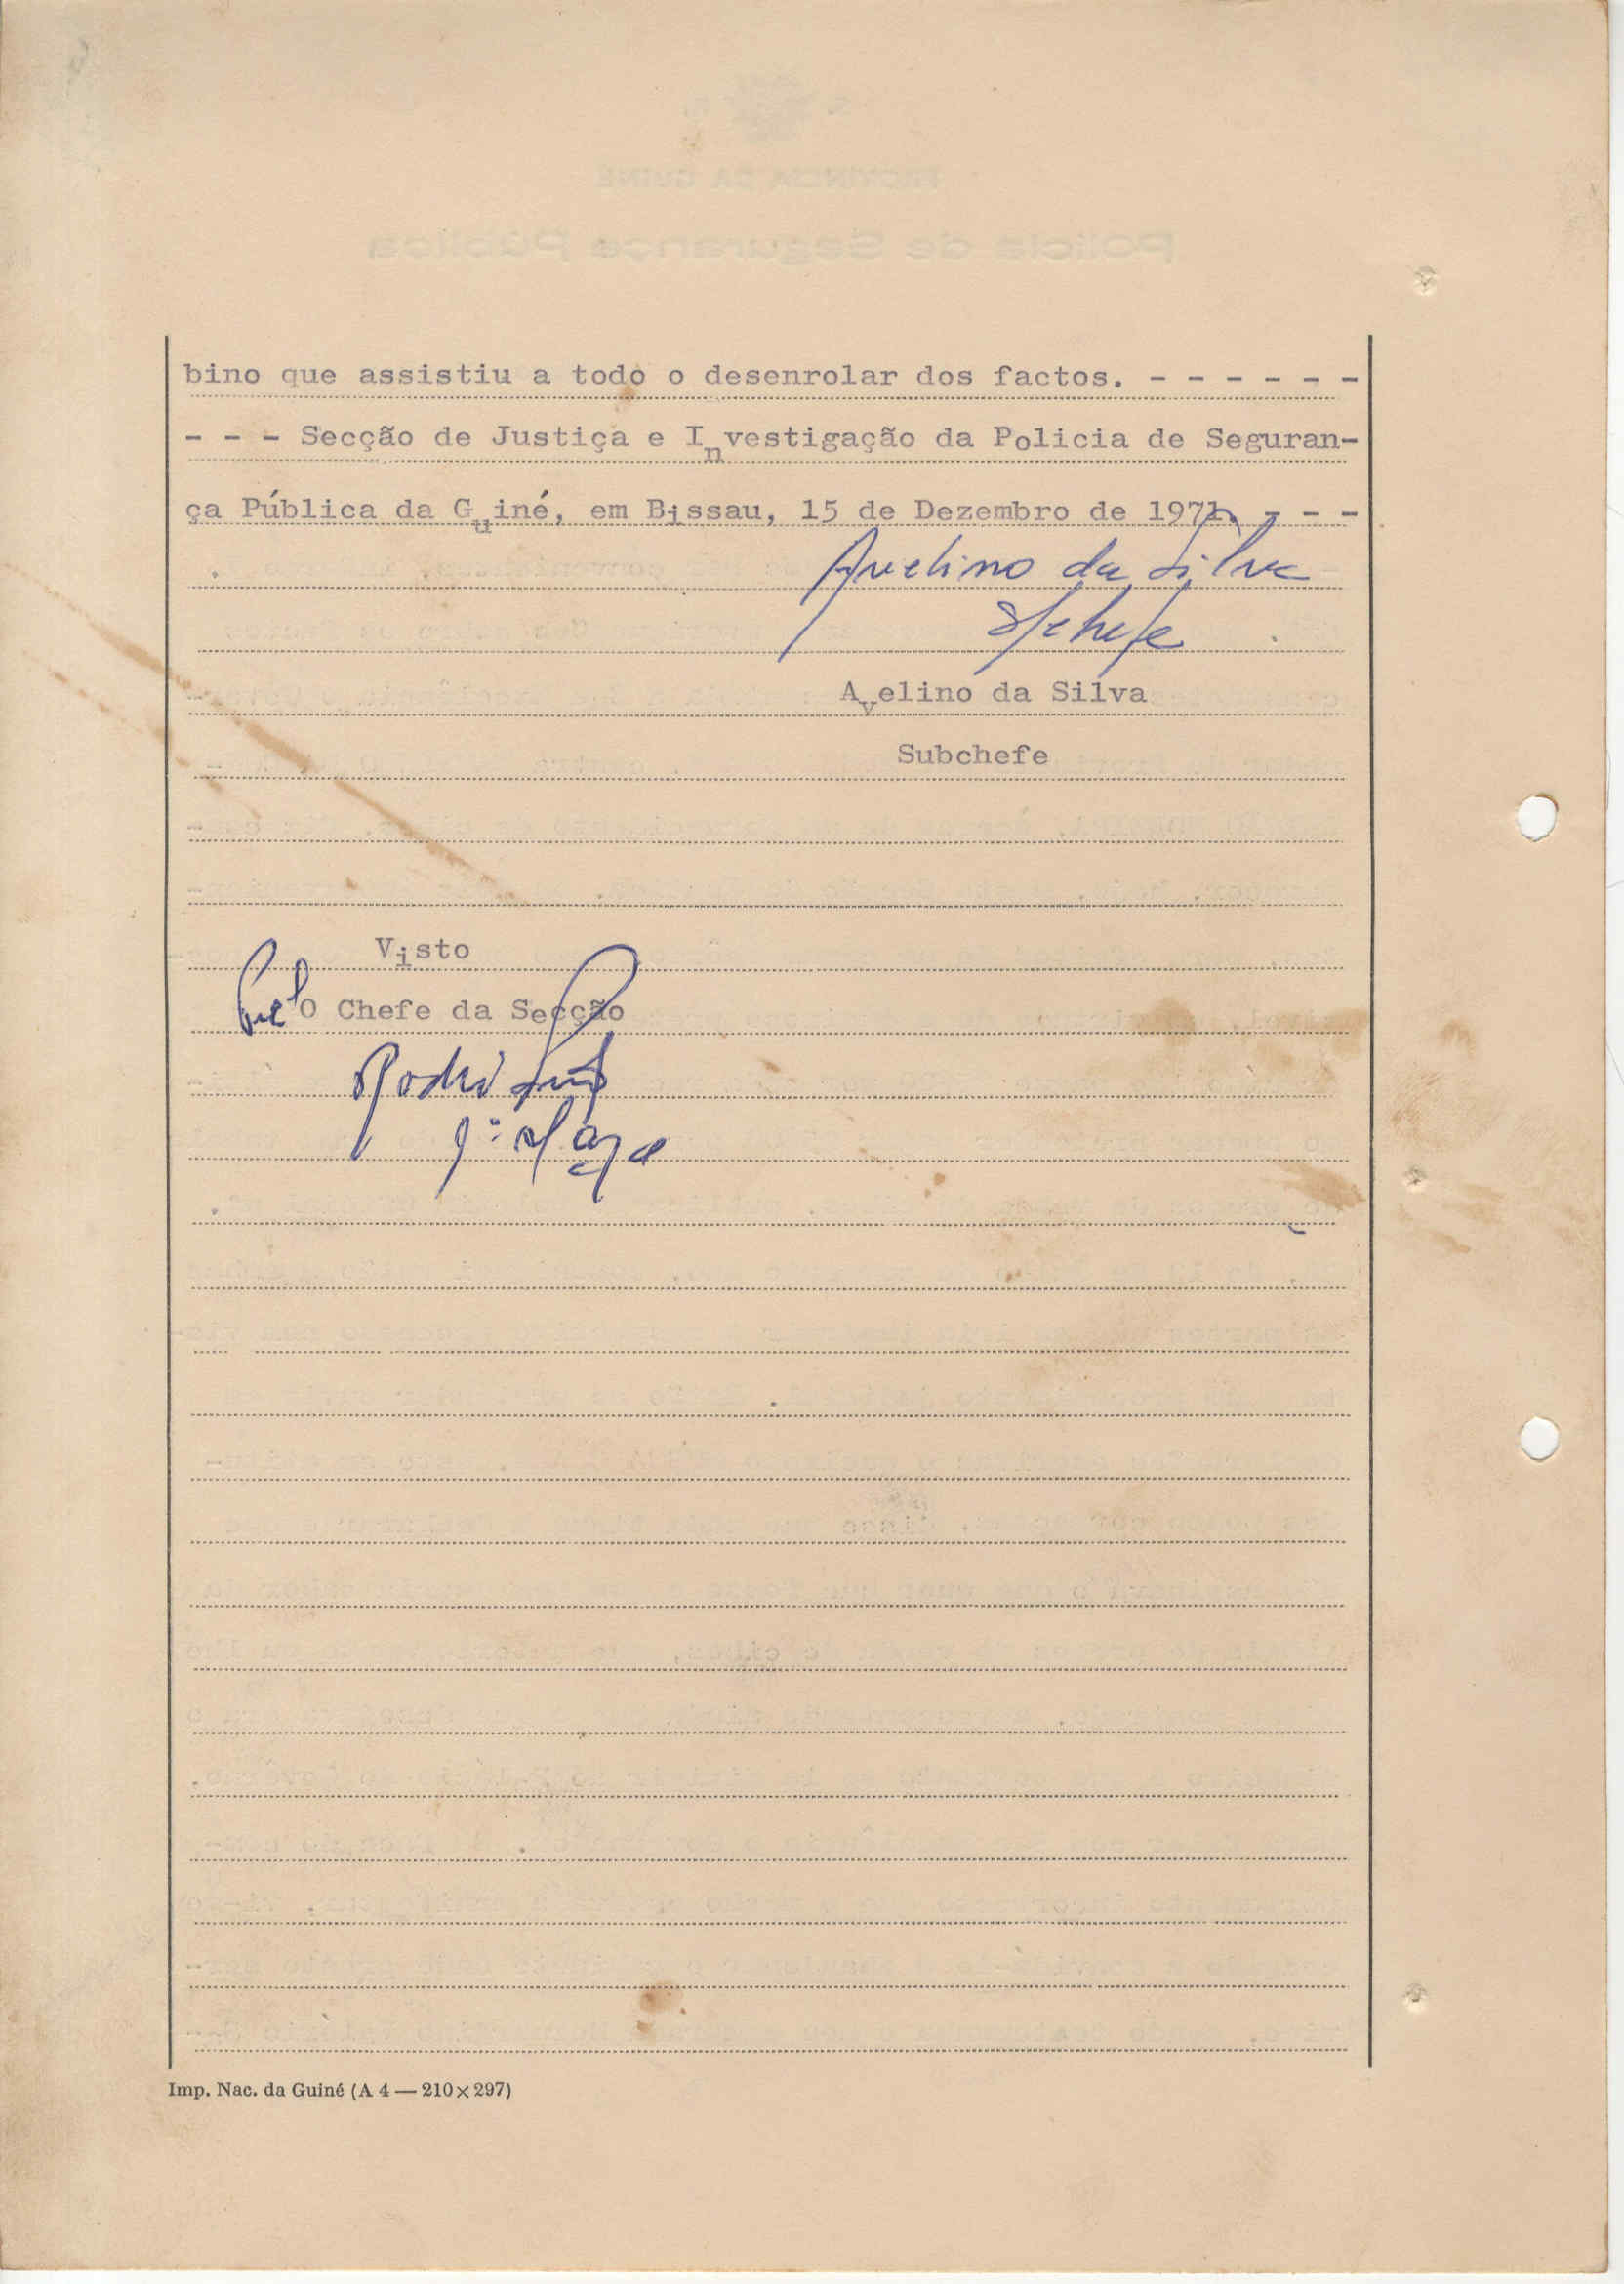 bino que assistiu a todo o desenrolar dos factos. - - - - - -
- - - Secção de Justiça e Investigação da Policia de Seguran-
ça Pública da Guiné, em Bissau, 15 de Dezembro de 1971. - - -
Avelino da Silva
S/chefe
Avelino da Silva
Subchefe
Visto
Pel'O Chefe da Secção
Imp. Nac. da Guiné (A 4 — 210×297)